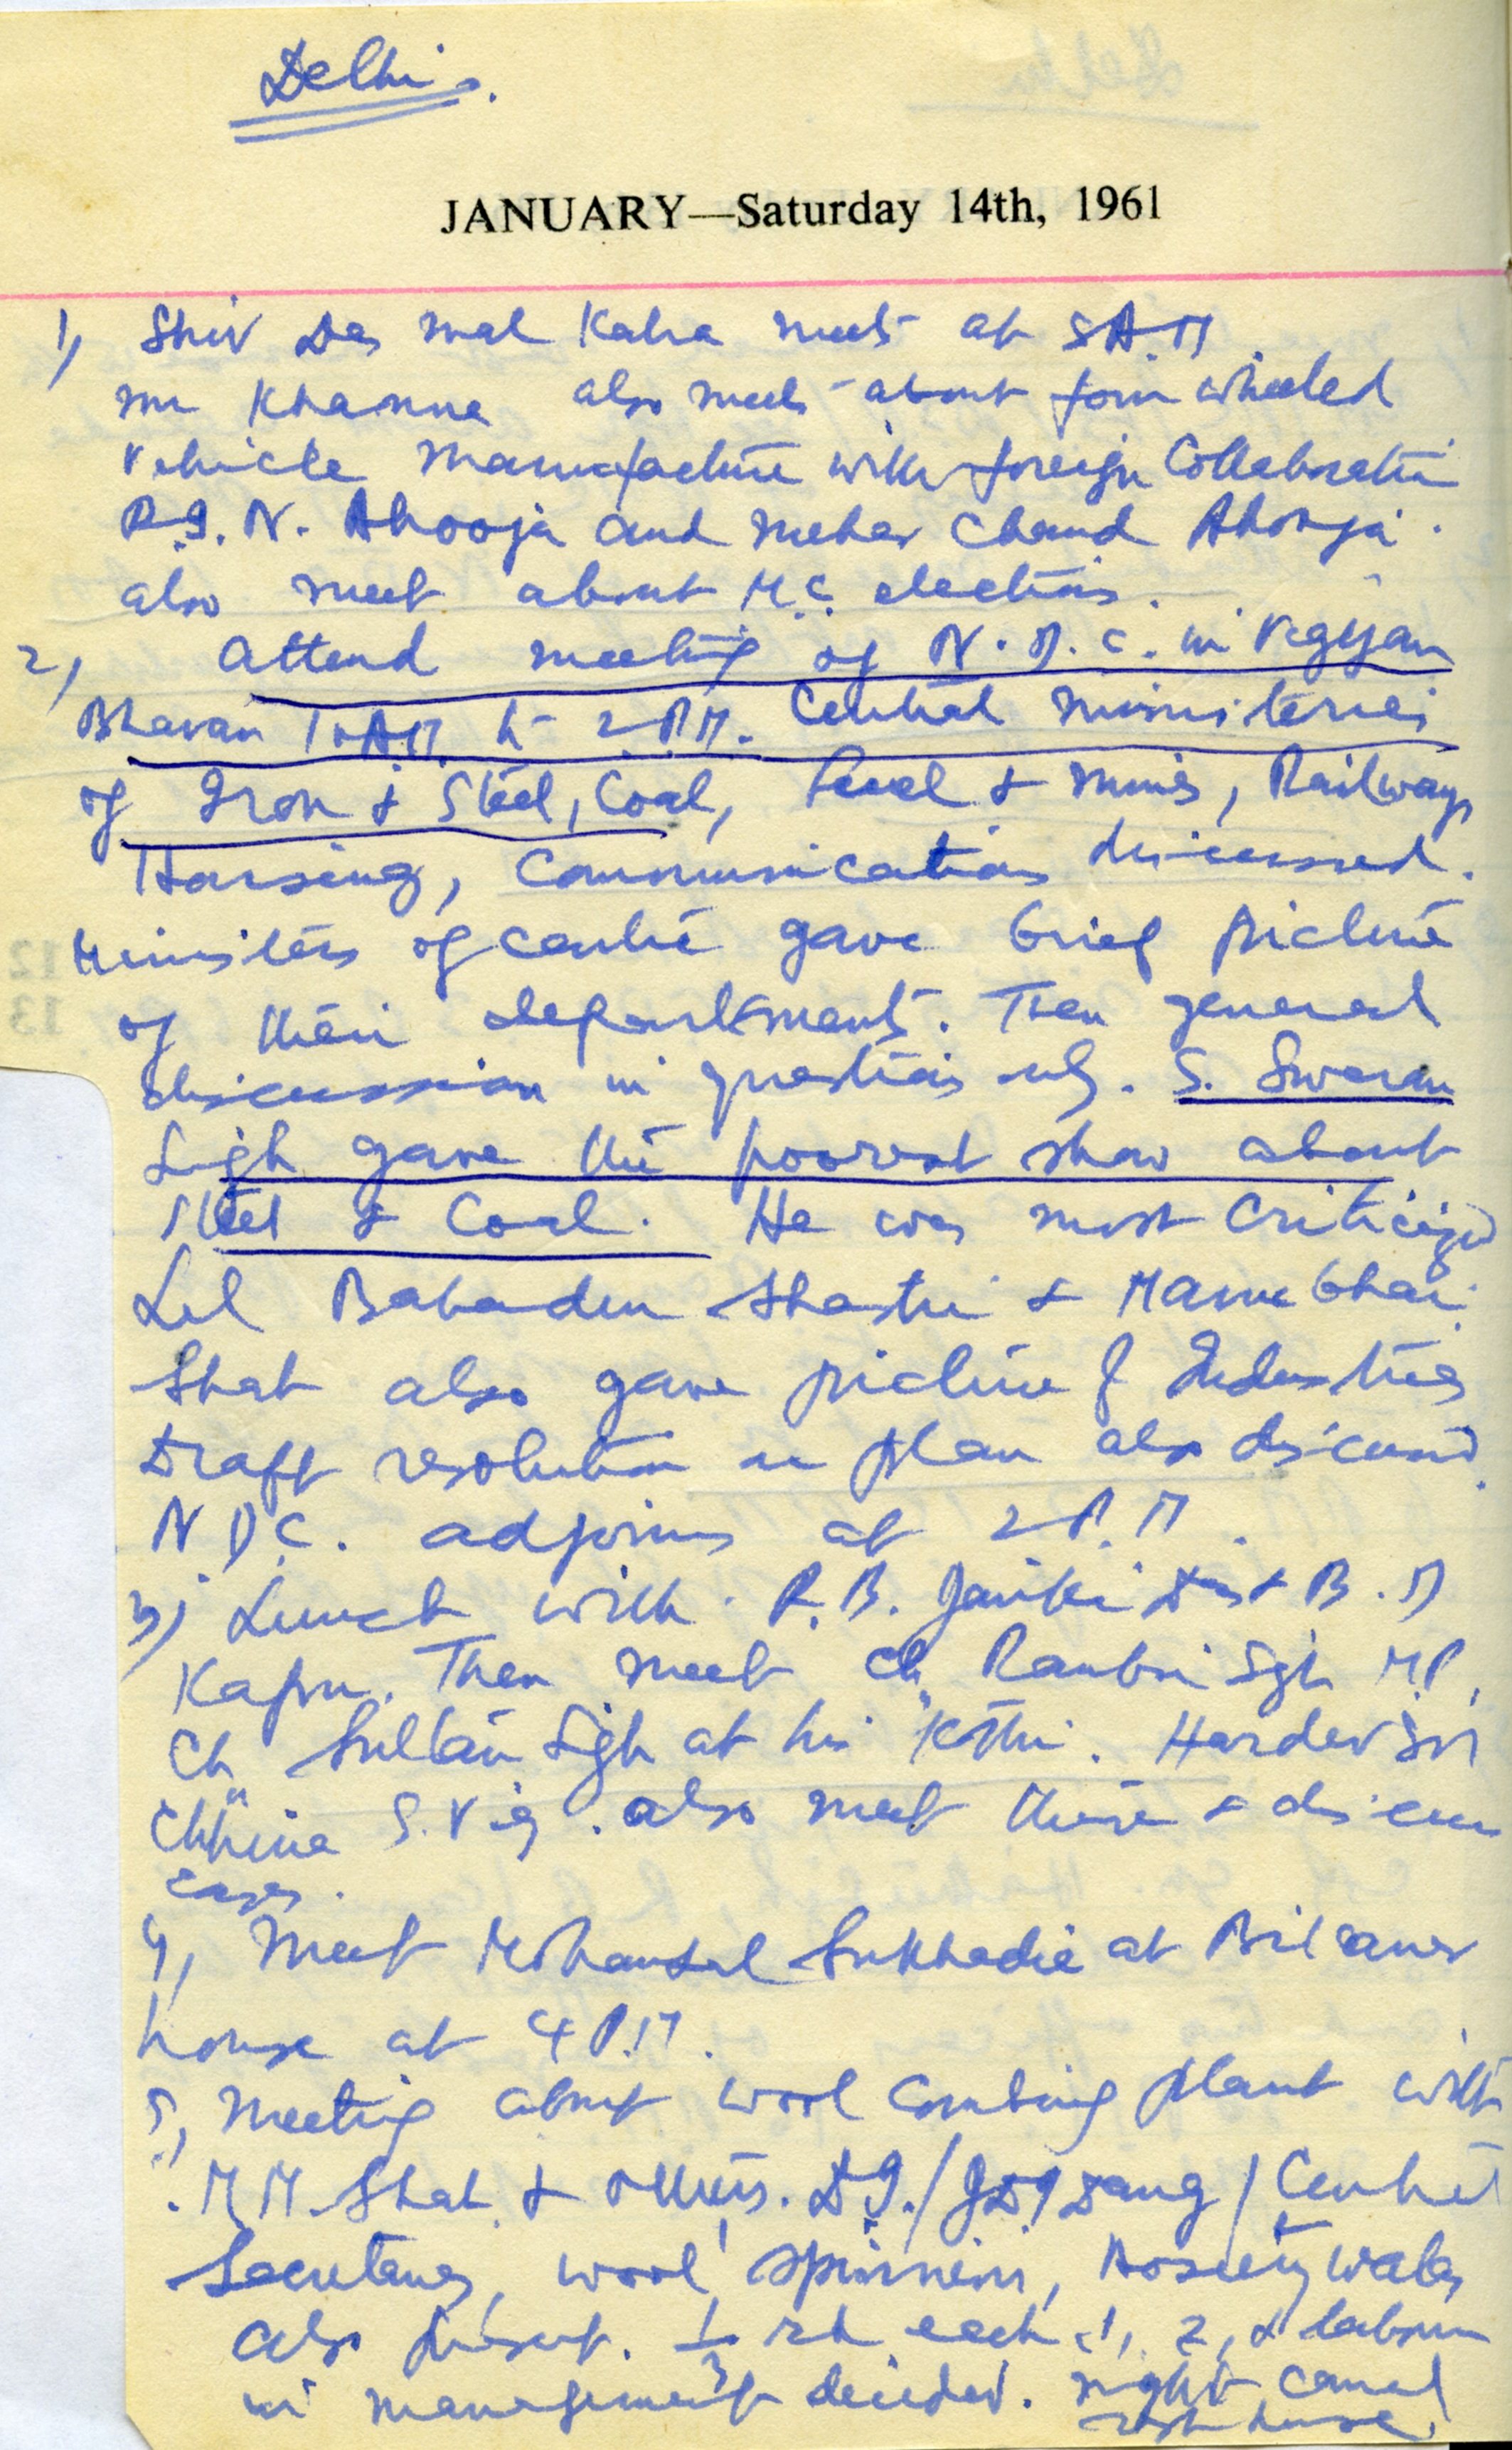 Delhi.
JANUARY—Saturday 14th, 1961
1) Shiv Das mal Kalra meets at 8 A.M
mr Khanna also meets about four wheeled
vehicle manufacture with foreign Collaboration
P.I.N. Ahooja and Meher Chand Ahooja.
also meet about M.C. elections.
2) Attend meeting of N.D.C. in Vigyan
Bhavan 10 AM to 2 P.M. Central ministeries
of Iron & Steel, Coal, Feuel & mines, Railways
Housing, Communications discussed.
Ministers of centre gave brief picture
of their departments. Then general
discussion in questions only. S. Swaran
Singh gave the poorest show about
Steel & Coal. He was most Criticized
Lal Bahadur Shastri & Manubhai
Shah also gave picture of Industries
Draft resolution on plan also discussed.
N.D.C. adjourns at 2 P.M.
3) Lunch with R.B. Janki Das & B.D
Kapur. Then meet Ch. Ranbir Sgh M.P.
Ch. Sultan Sigh at his Kothi. Hardev
Chhina S. Vig also meet there & discuss
cases.
4) Meet Mohanlal Sukhadia at Bikaner
house at 4 P.M.
5) Meeting about wool Combing plant with
M M Shah & others. D I./J D I Dang/Central
Secretary, wool spinners, Hosiery walas
also present. 1/3 rd each 1, 2, & labour
in management decided. night canal
rest house.